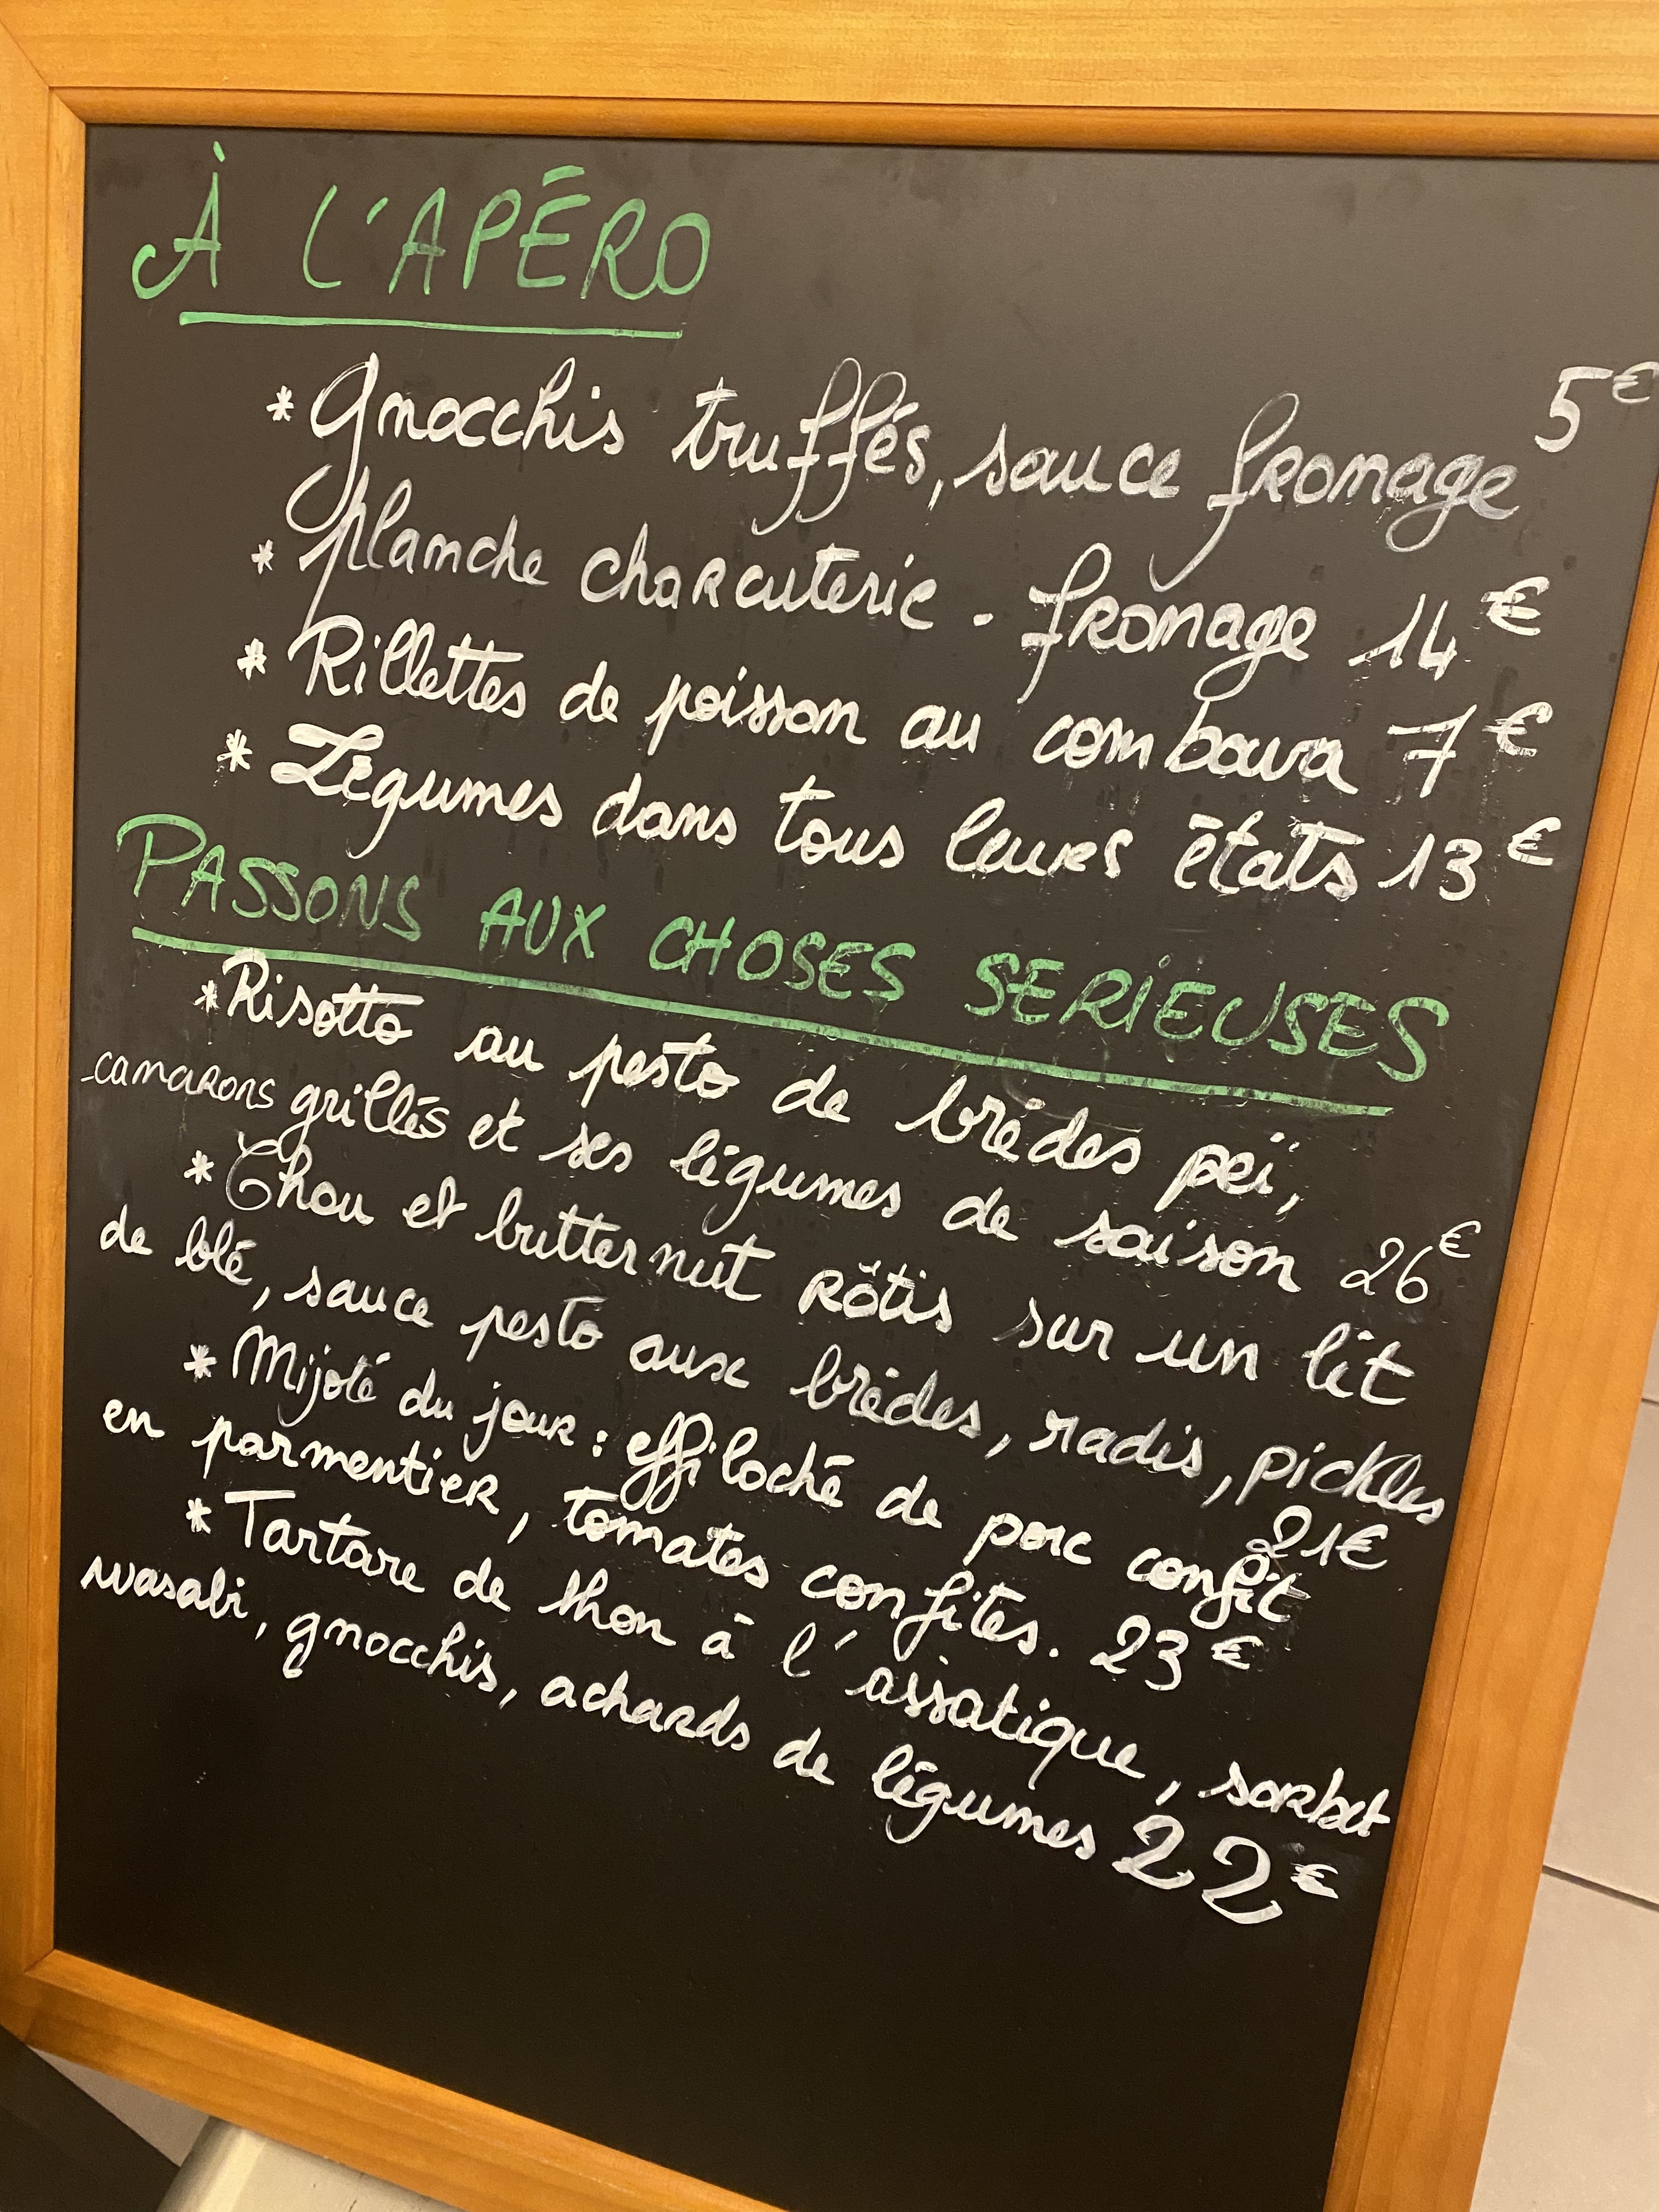 À L'APÉRO
* Gnocchis truffés, sauce fromage 5€
* planche charcuterie - fromage 14€
* Rillettes de poisson au combava 7€
* Légumes dans tous leurs états 13€
PASSONS AUX CHOSES SERIEUSES
* Risotto au pesto de brèdes peï,
camarons grillés et ses légumes de saison 26€
* Chou et butternut rôtis sur un lit
de blé, sauce pesto aux brèdes, radis, pickles
21€
* Mijoté du jour : effiloché de porc confit
en parmentier, tomates confites. 23€
* Tartare de thon à l'assatique, sorbet
wasabi, gnocchis, achards de légumes 22€